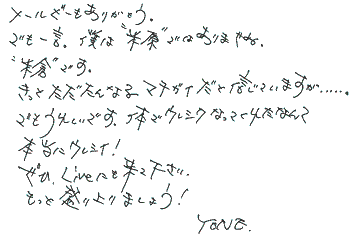 メールどーもありがとう。
でも一言。僕は"米原"ではありません。
"米倉"です。
きっとただたんなるマチガイだと信じていますが……。
でもうれしいです。体でウレシクなってくれたなんて
本当にウレシイ!
ぜひ、Liveにも来て下さい。
もっと盛り上りましょう!
YONE.